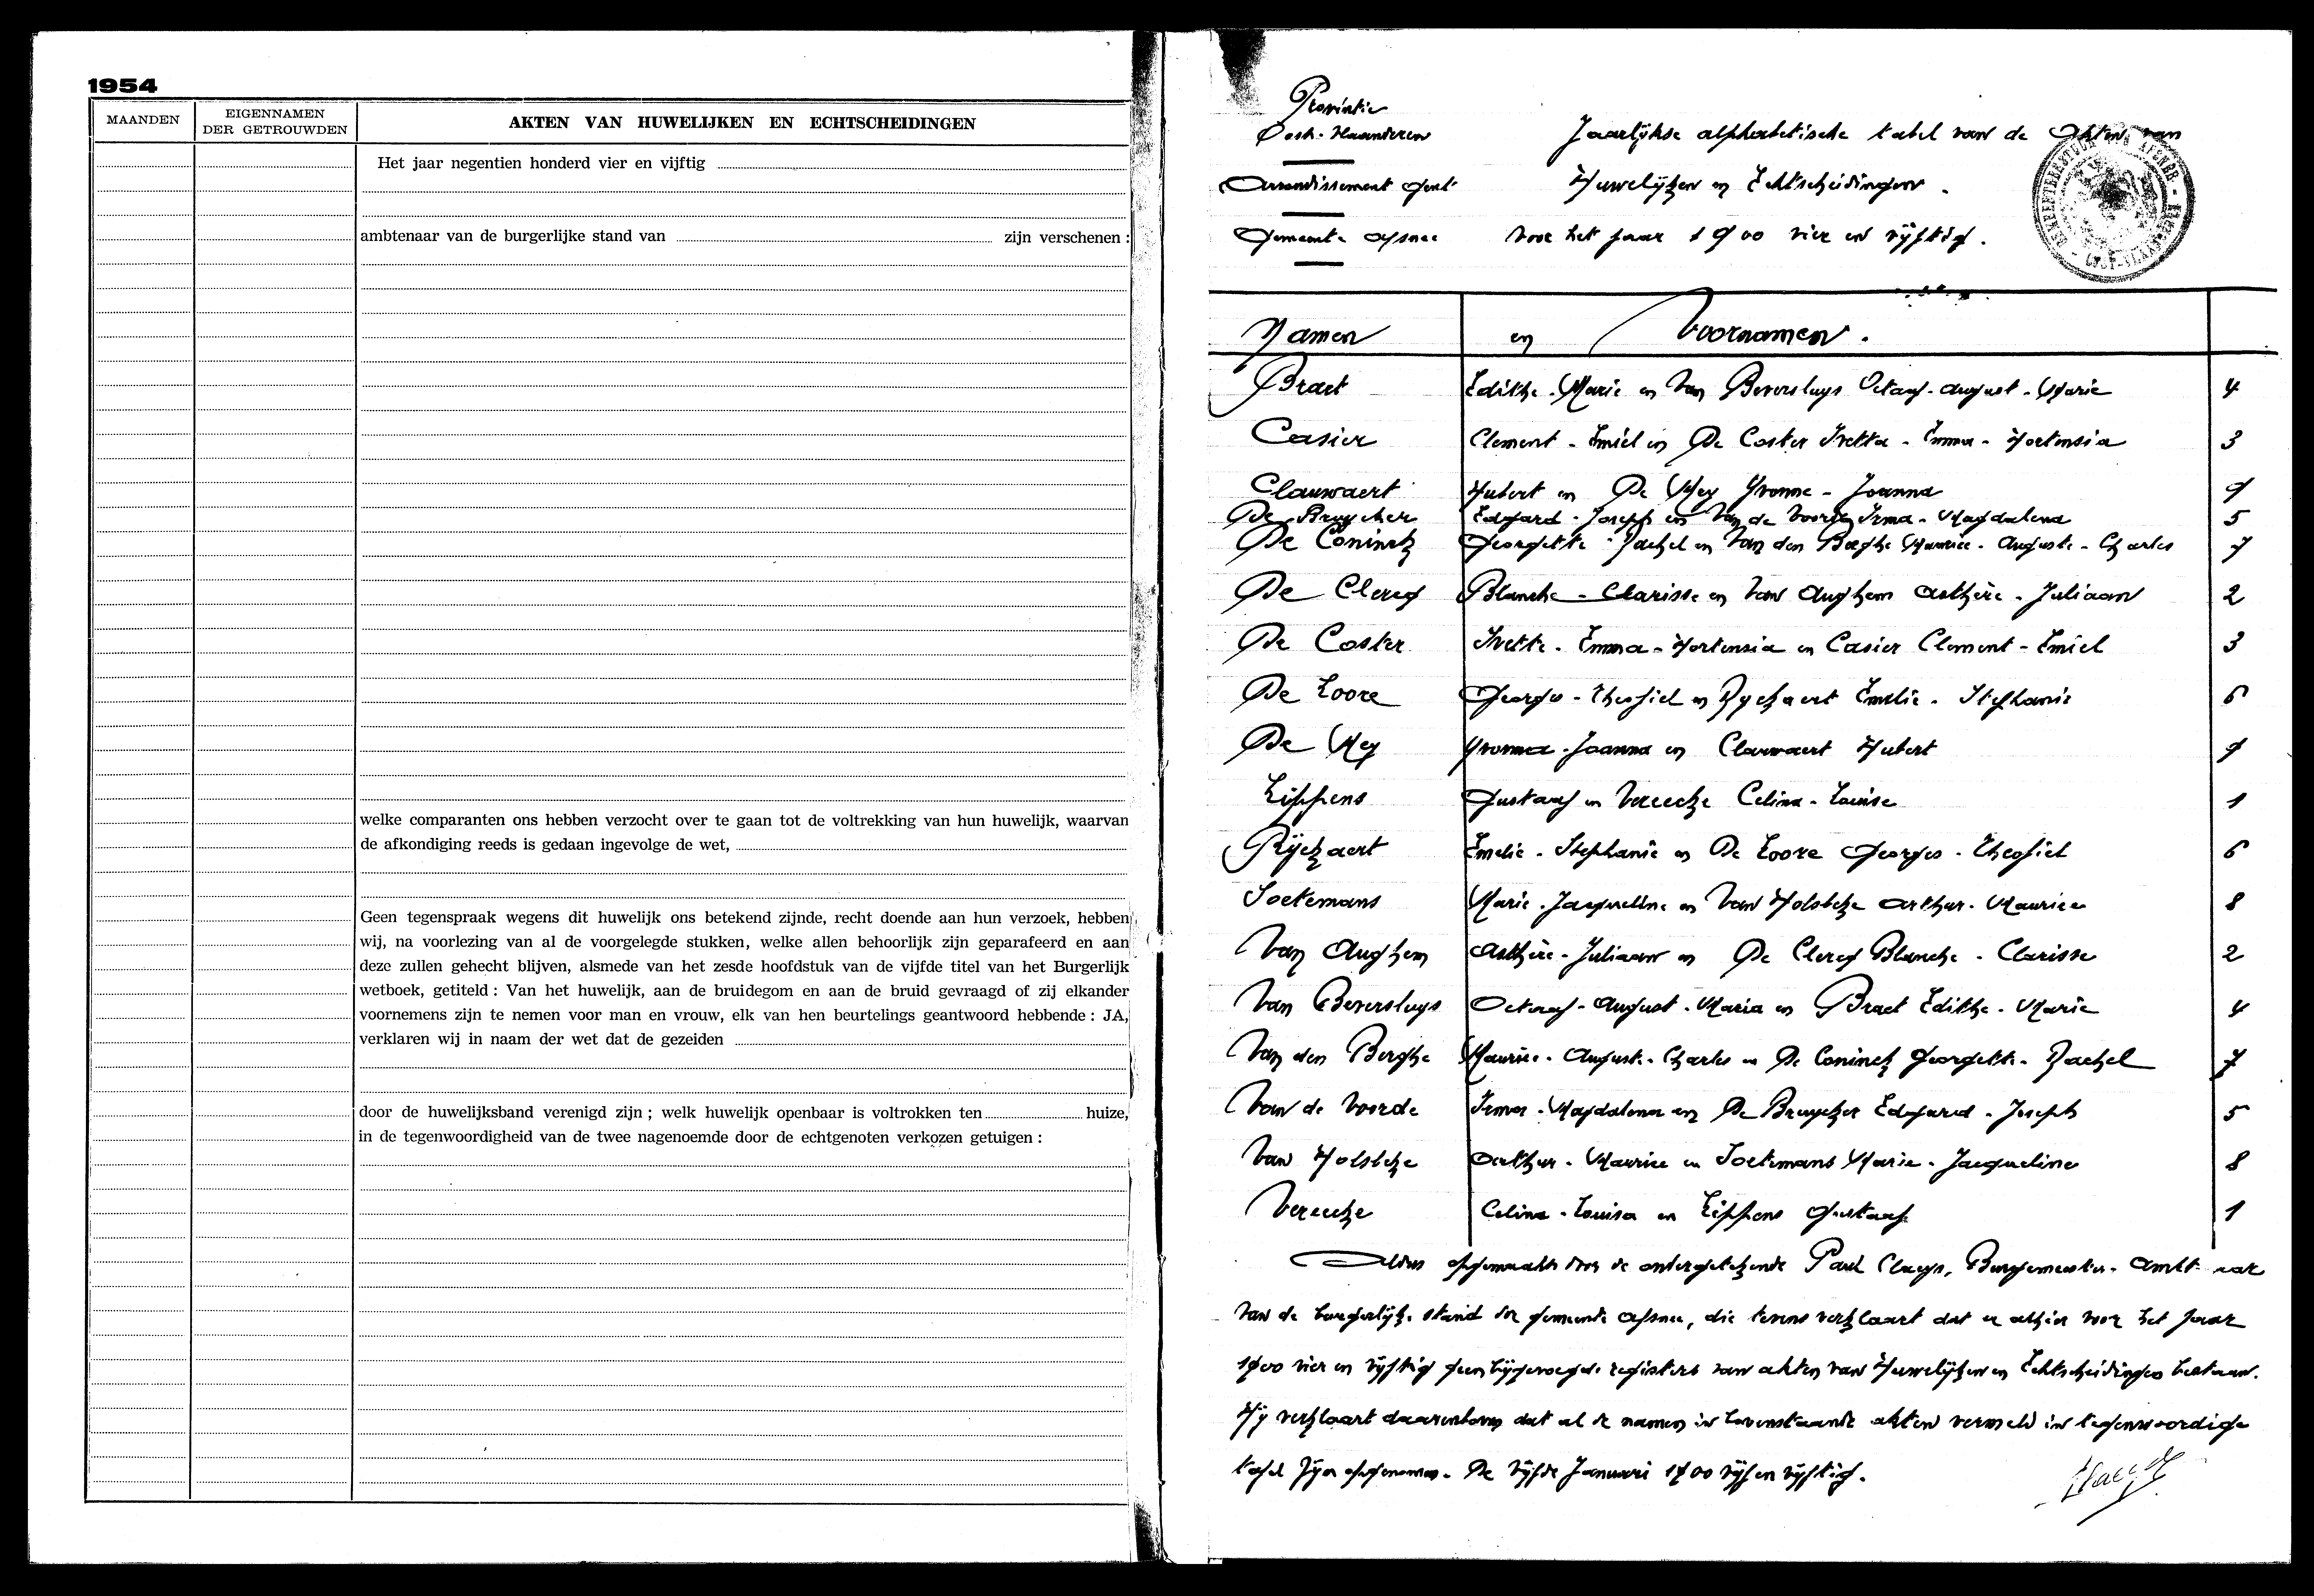 1954
MAANDEN
EIGENNAMEN
DER GETROUWDEN
AKTEN VAN HUWELIJKEN EN ECHTSCHEIDINGEN
Het jaar negentien honderd vier en vijftig
ambtenaar van de burgerlijke stand van zijn verschenen :
welke comparanten ons hebben verzocht over te gaan tot de voltrekking van hun huwelijk, waarvan
de afkondiging reeds is gedaan ingevolge de wet,
Geen tegenspraak wegens dit huwelijk ons betekend zijnde, recht doende aan hun verzoek, hebben
wij, na voorlezing van al de voorgelegde stukken, welke allen behoorlijk zijn geparafeerd en aan
deze zullen gehecht blijven, alsmede van het zesde hoofdstuk van de vijfde titel van het Burgerlijk
wetboek, getiteld : Van het huwelijk, aan de bruidegom en aan de bruid gevraagd of zij elkander
voornemens zijn te nemen voor man en vrouw, elk van hen beurtelings geantwoord hebbende : JA,
verklaren wij in naam der wet dat de gezeiden
door de huwelijksband verenigd zijn ; welk huwelijk openbaar is voltrokken ten huize,
in de tegenwoordigheid van de twee nagenoemde door de echtgenoten verkozen getuigen :
Provintie
Oost-Vlaanderen
Arrondissement Gent
Gemeente Afsnee
Jaarlijkse alphabetische tabel van de Akten van
Huwelijken en Echtscheidingen.
voor het jaar 1900 vier en vijftig.
Namen en Voornamen.
Braet Edithe-Marie en Van Beversluys Octaaf-August-Marie 4
Casier Clement-Emiel en De Coster Ivetta-Emma-Hortensia 3
Clauwaert Hubert en De Mey Yvonne-Joanna 9
De Bruycker Edgard-Joseph en Van de Voorde Irma-Magdalena 5
De Coninck Georgette-Rachel en Van den Berghe Maurice-Auguste-Charles 7
De Clercq Blanche-Clarisse en Van Aughem Asthère-Juliaan 2
De Coster Ivette-Emma-Hortensia en Casier Clement-Emiel 3
De Loore Georges-Theofiel en Ryckaert Emelie-Stephanie 6
De Mey Yvonna-Joanna en Clauwaert Hubert 9
Lippens Gustaaf en Vereecke Celina-Louise 1
Rijckaert Emelie-Stephanie en De Loore Georges-Theofiel 6
Soetemans Marie-Jacqueline en Van Holsbeke Arthur-Maurice 8
Van Aughem Asthère-Juliaan en De Clercq Blanche-Clarisse 2
Van Beversluys Octaaf-August-Maria en Braet Edithe-Marie 4
Van den Berghe Maurice-Auguste-Charles en De Coninck Georgette-Rachel 7
Van de Voorde Irma-Magdalena en De Bruycker Edgard-Joseph 5
Van Holsbeke Arthur-Maurice en Soetemans Marie-Jacqueline 8
Vereecke Celina-Louisa en Lippens Gustaaf 1
Aldus opgemaakt door de ondergetekende Paul Claeys, Burgemeester-Ambtenaar
van de burgerlijke stand der gemeente Afsnee, die tevens verklaart dat er alhier voor het jaar
1900 vier en vijftig geen bijgevoegde registers van akten van Huwelijken en Echtscheidingen bestaan.
Hij verklaart daarenboven dat al de namen in bovenstaande akten vermeld in tegenwoordige
tafel zijn opgenomen. De vijfde Januari 1900 vijf en vijftig.